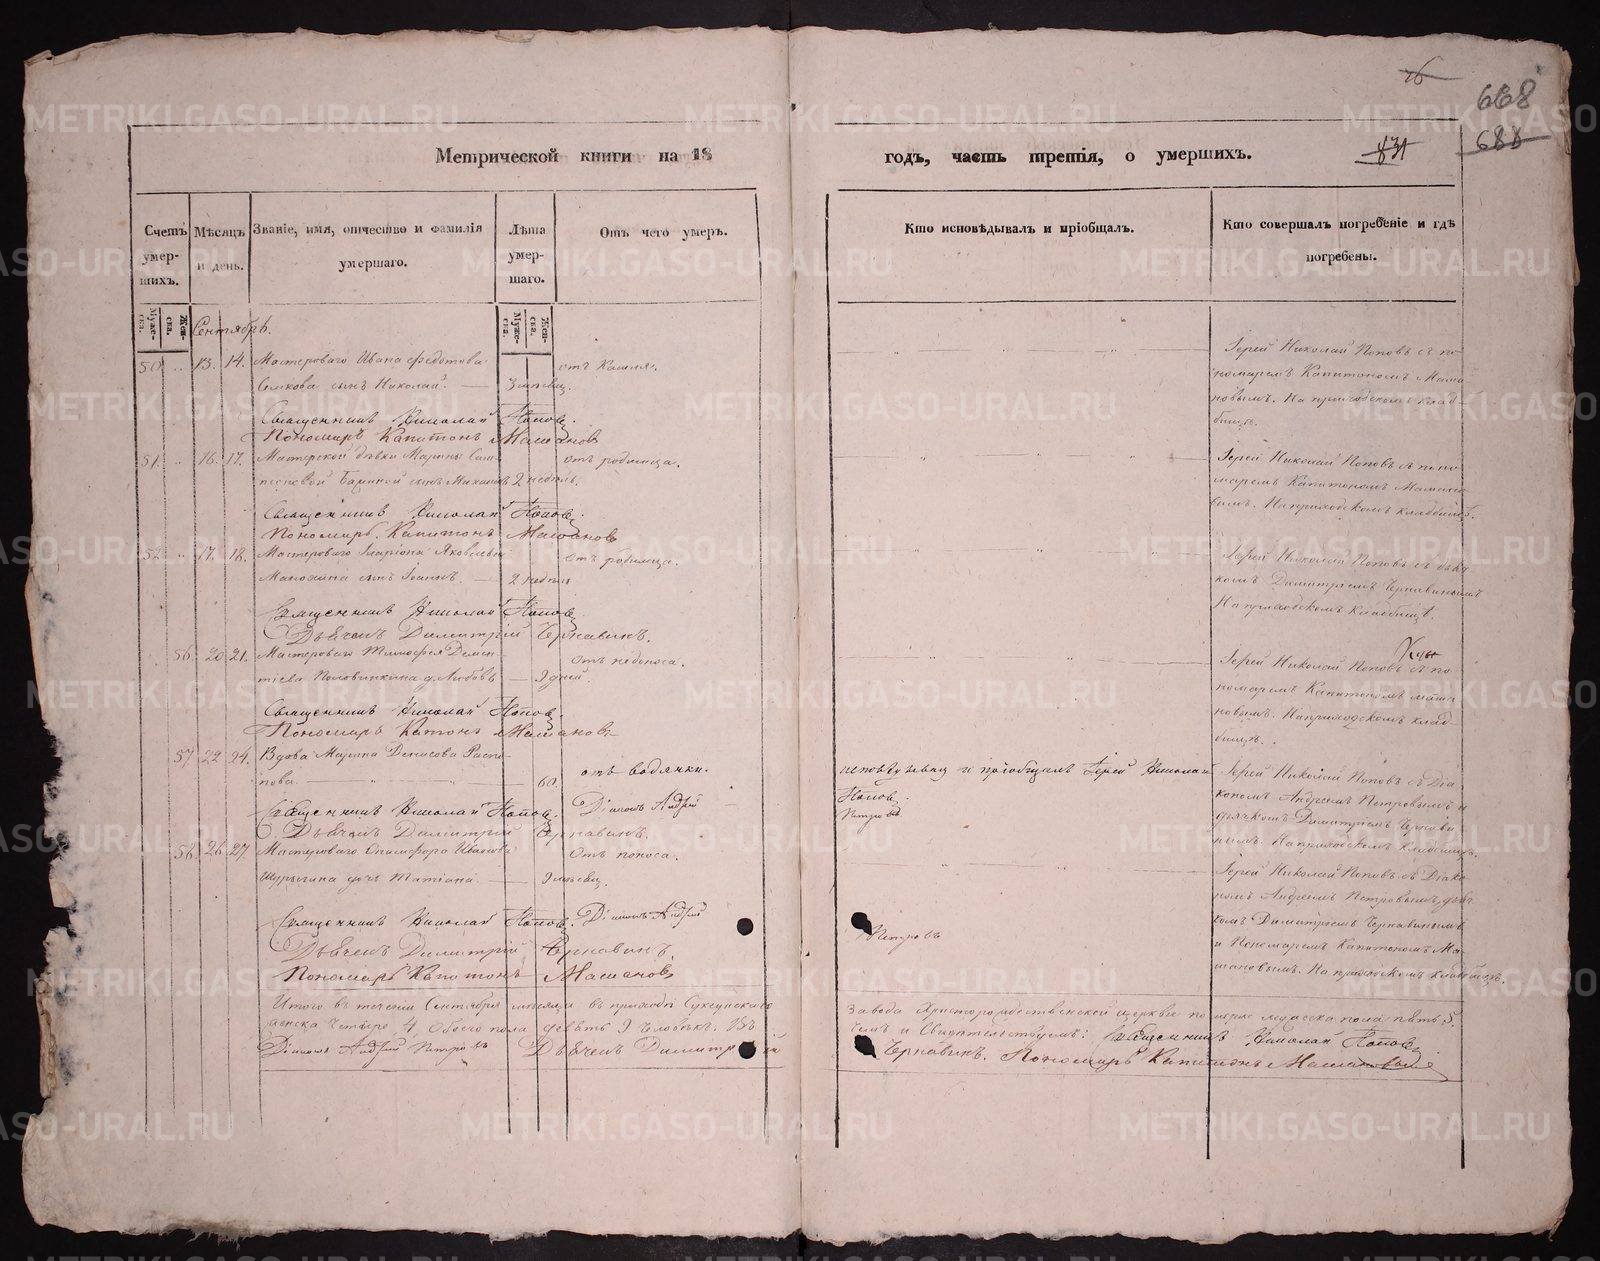 26
668
688
831
Метрической книги на 18
годъ, часть третія, о умершихъ.
Счетъ умер-шихъ.
Мѣсяцъ и день.
Званіе, имя, отчество и фамилія умершаго.
Лѣта умер-шаго.
Отъ чего умеръ.
Кто исповѣдывалъ и пріобщалъ.
Кто совершалъ погребеніе и гдѣ погребены.
Муже-ска.
Жен-ска.
Муже-ска.
Жен-ска.
Сентябрь.
50 " 13. 14. Мастероваго Ивана Федотова
сынъ Николай. 3 мѣсяц.
отъ Кашля.
Іерей Николай Поповъ съ по
номаремъ Капитономъ Маша
новымъ. На приходскомъ клад
бищѣ.
Священникъ Николай Поповъ.
Пономарь Капитонъ Машановъ
51. " 16. 17. Мастерской дѣвки Марины
сынъ Михаилъ 2 недѣль.
отъ родимца.
Іерей Николай Поповъ съ поно
маремъ Капитономъ Машано
вымъ. На приходскомъ кладбищѣ.
Священникъ Николай Поповъ.
Пономарь Капитонъ Машановъ
52. " 17. 18. Мастероваго Иларіона Яковлева
сынъ Іоаннъ. 2 недѣли
отъ родимца.
Іерей Николай Поповъ съ дьяч
комъ Димитріемъ Чернавинымъ
На приходскомъ кладбищѣ.
Священникъ Николай Поповъ
Дьячекъ Димитрій Чернавинъ.
56. 20 21. Мастероваго Тимофея Демен
тіева Половинкина д. Любовь 9 дней.
отъ недоноса.
Іерей Николай Поповъ съ по
номаремъ Капитономъ Маша
новымъ. На приходскомъ клад
бищѣ.
Священникъ Николай Поповъ.
Пономарь Капитонъ Машановъ
57 22 24. Вдова Марина Денисова
60.
отъ водянки.
исповѣдывалъ и пріобщалъ Іерей Николай
Поповъ.
Іерей Николай Поповъ съ Діа
кономъ Андреемъ Петровымъ и
дьячкомъ Димитріемъ Чернави
нымъ. На приходскомъ кладбищѣ.
Священникъ Николай Поповъ. Діаконъ Андрей
Петровъ
Дьячекъ Димитрій Чернавинъ.
58. 26 27 Мастероваго Никифора Иванова
Шурыгина дочь Татіана 9 мѣсяц.
отъ поноса.
Іерей Николай Поповъ съ Діако
номъ Андреемъ Петровымъ, дьяч
комъ Димитріемъ Чернавинымъ
и Пономаремъ Капитономъ Ма
шановымъ. На приходскомъ кладбищѣ.
Священникъ Николай Поповъ. Діаконъ Андрей
Петровъ
Дьячекъ Димитрій Чернавинъ.
Пономарь Капитонъ Машановъ
Итого въ теченіи Сентября мѣсяца въ приходѣ Суксунскаго
завода Христорождественской церкви померло мужеска пола пять 5.
женска четыре 4. Обоего пола девять 9 человѣкъ. Въ
чемъ и свидѣтельствуемъ: Священникъ Николай Поповъ
Діаконъ Андрей Петровъ Дьячекъ Димитрій
Чернавинъ. Пономарь Капитонъ Машановъ
METRIKI.GASO-URAL.RU